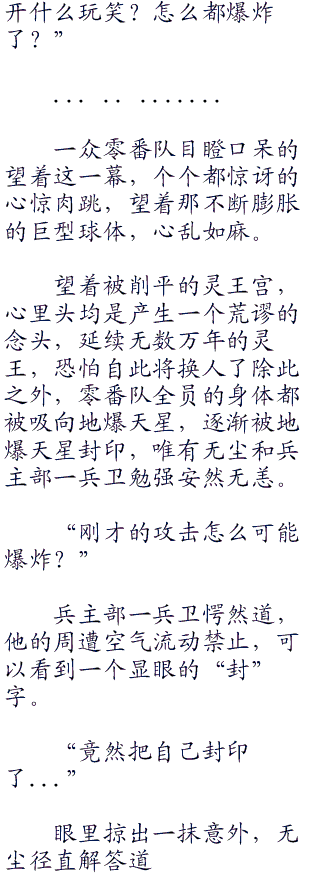 开什么玩笑？怎么都爆炸
了？”
... .. .......
一众零番队目瞪口呆的
望着这一幕，个个都惊讶的
心惊肉跳，望着那不断膨胀
的巨型球体，心乱如麻。
望着被削平的灵王宫，
心里头均是产生一个荒谬的
念头，延续无数万年的灵
王，恐怕自此将换人了除此
之外，零番队全员的身体都
被吸向地爆天星，逐渐被地
爆天星封印，唯有无尘和兵
主部一兵卫勉强安然无恙。
“刚才的攻击怎么可能
爆炸？”
兵主部一兵卫愕然道，
他的周遭空气流动禁止，可
以看到一个显眼的“封”
字。
“竟然把自己封印
了...”
眼里掠出一抹意外，无
尘径直解答道